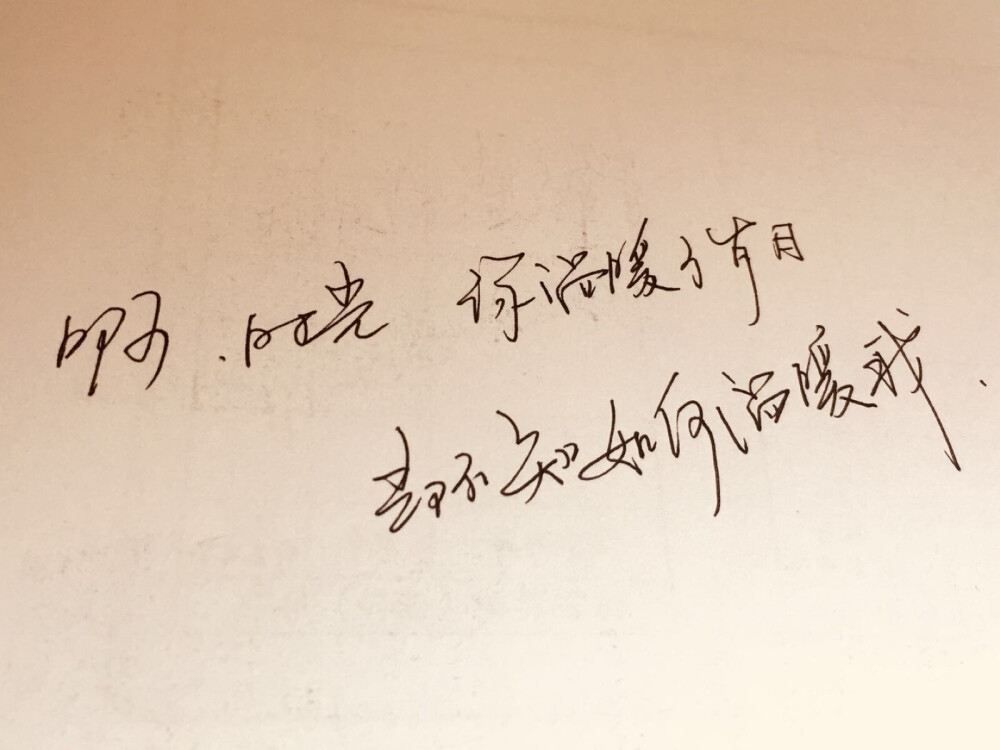 啊.时光 你温暖了岁月
却不知如何温暖我.